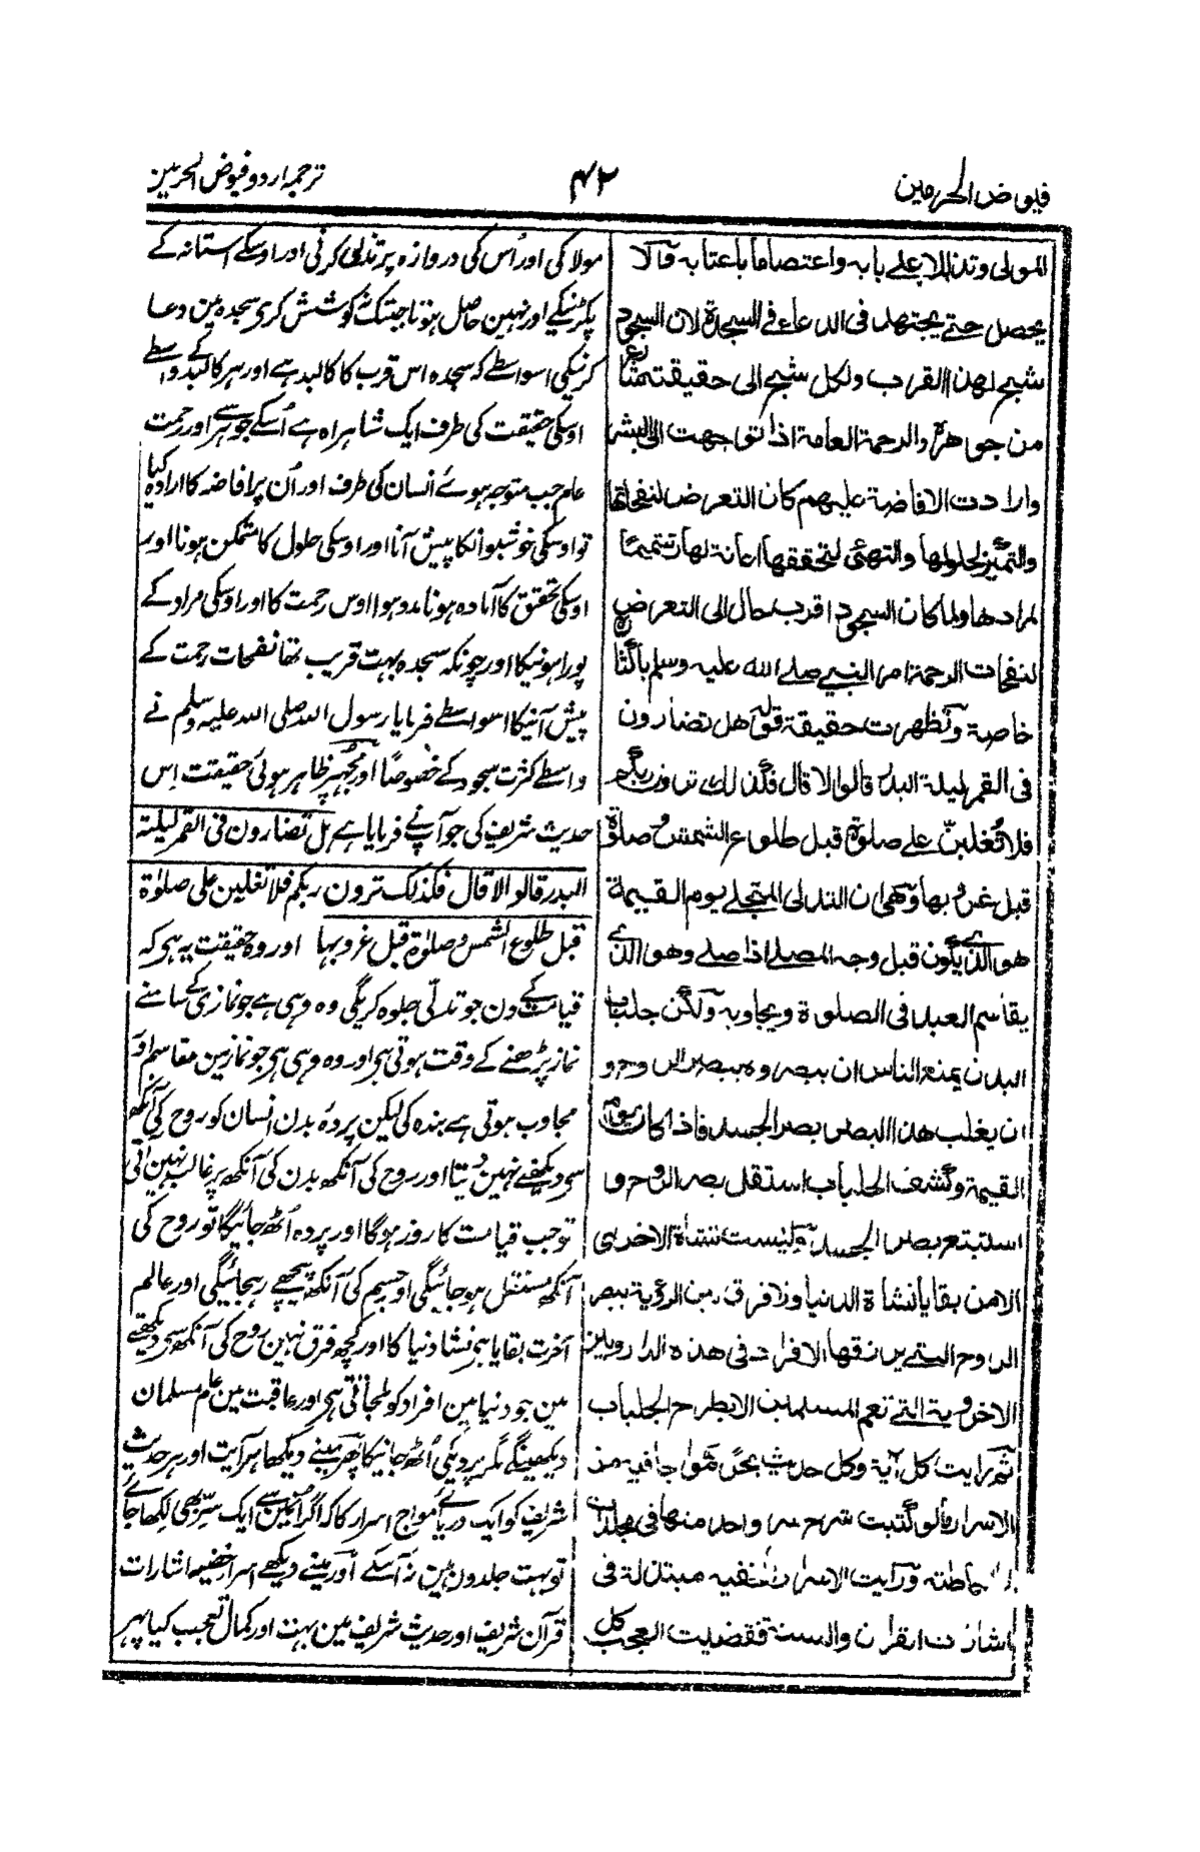 فیوض الحرمین
۴۲
ترجمہ اردو فیوض الحرمین
المولی وتذللا علے بابہ واعتصاما باعتابہ وآلا
یحصل حتے یجتھد فی الدعاء فی السجدۃ لان السجود
شبح لھذا القرب ولکل شبح الی حقیقتہ شارع
من جواھرہ والرحمۃ العامۃ اذا تواجھت الی البشر
وارادت الافاضۃ علیھم کان التعرض لنفحاتھا
والتمیز لحلولھا والتھئی لتحققھا اعانۃ لھا وتتمیما
لمرادھا ولما کان السجود اقرب حال الی التعرض
لنفحات الرحمۃ امر النبی صلے اللہ علیہ وسلم باکثارہ
خاصۃ وظھرت حقیقۃ قولہ ھل تضارون
فی القمر لیلۃ البدر قالوا لا قال فکذلک ترون ربکم
فلا تغلبن علے صلوۃ قبل طلوع الشمس وصلوۃ
قبل غروبھا وھی ان التدلی المتجلے یوم القیمۃ
ھو الذی یکون قبل وجہ المصلے اذا صلے وھو الذی
یقاسم العبد فی الصلوۃ ویجاوبہ ولکن جلباب
البدن یمنع الناس ان یبصروہ ببصر الروح و
ان یغلب ھذا البصر بصر الجسد فاذا کان یوم
القیمۃ وکشف الجلباب استقل بصر الروح و
استتبع بصر الجسد ولیست نشاۃ الاخری
الا من بقایا نشاۃ الدنیا ولا فرق بین الرؤیۃ ببصر
الروح التے یرزقھا الافراد فی ھذہ الدار وبین
الاخرویۃ التے تعم المسلمین الا بطرح الجلباب
ثم رایت کل آیۃ وکل حدیث بحرا مواجا فیہ من
الاسرار ما لو کتبت شرح سر واحد منھا فی مجلدات
ما احاطتہ ورایت الاسرار الخفیہ مبتذلۃ فی
اشارات القران والسنۃ فقضیت العجب کل
مولا کی اور اُس کی دروازہ پر تذلل کرنی اور اوسکے استانہ کے
پکڑنیکے اور نہین حاصل ہوتا جبتک نہ کوشش کری سجدہ مین دعا
کرنیکی اسواسطے کہ سجدہ اس قرب کا کالبد ہے اور ہر کالبد کے واسطے
اوسکی حقیقت کی طرف ایک شاہراہ ہے اُسکے جوہر سے اور رحمت
عام جب متوجہ ہوئے انسان کی طرف اور اُن پر افاضہ کا ارادہ کیا
تو اوسکی خوشبوانکا پیش آنا اور اوسکی حلول کا متمکن ہونا اور
اوسکی تحقق کا آمادہ ہونا مدد ہوا اوس رحمت کا اور اوسکی مراد کے
پورا ہونیکا اور چونکہ سجدہ بہت قریب تھا نفحات رحمت کے
پیش آنیکا اسواسطے فرمایا رسول اللہ صلی اللہ علیہ وسلم نے
واسطے کثرت سجود کے خصوصًا اور مجھپر ظاہر ہوئی حقیقت اِس
حدیث شریف کی جو آپ نے فرمایا ہے ہل تضارون فی القمر لیلۃ
البدر قالوا لا قال فکذلک ترون ربکم فلا تغلبن علی صلوٰۃ
قبل طلوع الشمس وصلوٰۃ قبل غروبہا اور وہ حقیقت یہ ہے کہ
قیامت کے دن جو تدلّی جلوہ کریگی وہ وہی ہے جو نمازی کے سامنے
نماز پڑھنے کے وقت ہوتی ہے اور وہ وہی ہے جو نماز مین مقاسم اور
مجاوب ہوتی ہے بندہ کی لیکن پردۂ بدن انسان کو روح کی آنکھ
سے دیکھنے نہین دیتا اور روح کی آنکھ بدن کی آنکھ پر غالب نہین آتی
تو جب قیامت کا روز ہوگا اور پردہ اُٹھ جائیگا تو روح کی
آنکھ مستقل ہو جائیگی اور جسم کی آنکھ پیچھے رہجائیگی اور عالم
آخرت بقایا ہے نشاۃ دنیا کا اور کچھ فرق نہین روح کی آنکھ سے دیکھنے
مین جو دنیا مین افراد کو ملجاتی ہے اور عاقبت مین عام مسلمان
دیکھینگے مگر پردیکی اُٹھ جانیکا پھر مینے دیکھا ہر آیت اور ہر حدیث
شریف کو ایک دریائے مواج اسرار کا کہ اگر انمین سے ایک سِرّ بھی لکھا جائے
تو بہت جلدون مین نہ آسکے اور مینے دیکھے اسرار خفیہ اشارات
قرآن شریف اور حدیث شریف مین بہت اور کمال تعجب کیا پہر